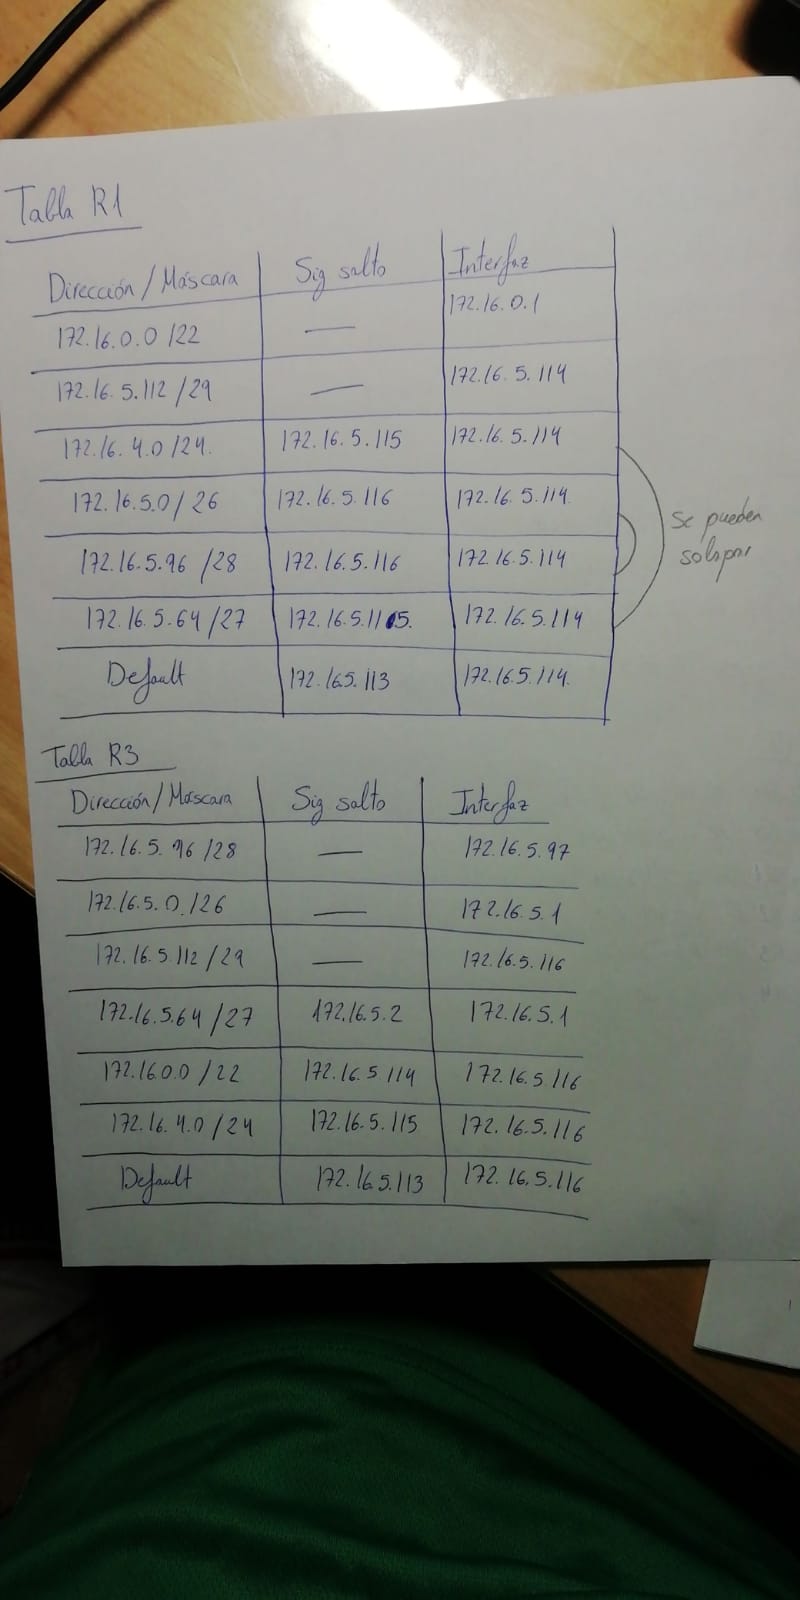 Tabla R1
Dirección / Máscara Sig salto Interfaz
172.16.0.0 /22 — 172.16.0.1
172.16.5.112 /29 — 172.16.5.114
172.16.4.0 /24. 172.16.5.115 172.16.5.114
172.16.5.0 / 26 172.16.5.116 172.16.5.114.
172.16.5.96 /28 172.16.5.116 172.16.5.114
172.16.5.64 /27 172.16.5.115. 172.16.5.114
Default 172.165.113 172.16.5.114.
Se pueden
solapar
Tabla R3
Dirección / Máscara Sig salto Interfaz
172.16.5.96 /28 — 172.16.5.97
172.16.5.0./26 — 172.16.5.1
172.16.5.112 /29 — 172.16.5.116
172.16.5.64 /27 172.16.5.2 172.16.5.1
172.160.0 /22 172.16.5.114 172.16.5.116
172.16.4.0 /24 172.16.5.115 172.16.5.116
Default 172.16.5.113 172.16.5.116